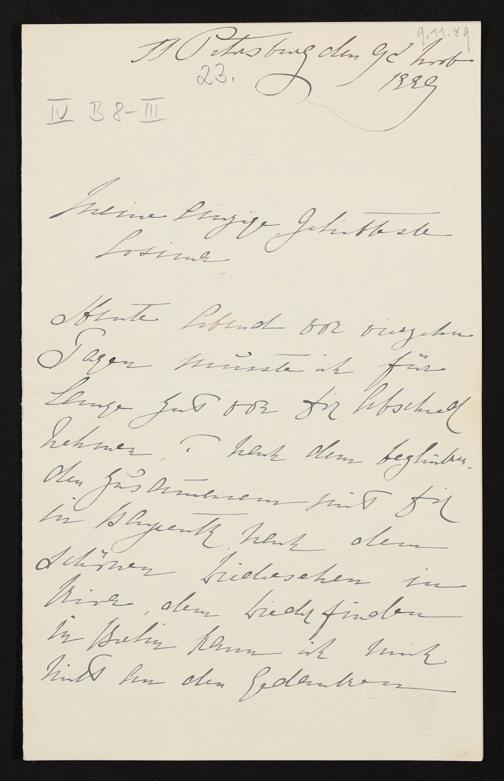 9.11.89
St Petersburg den 9t Novb
23.
1889
IV B 8-III
Meine einzige Geliebteste
Cosima,
Heute Abend vor vierzehn
Tagen musste ich für
lange Zeit von Dir Abschied
nehmen, u nach dem beglücken-
den Zusammensein mit Dir
in Bayreuth, nach dem
schönen Wiedersehen in
, dem Wiederfinden
in Berlin kann ich mich
nicht an den Gedanken